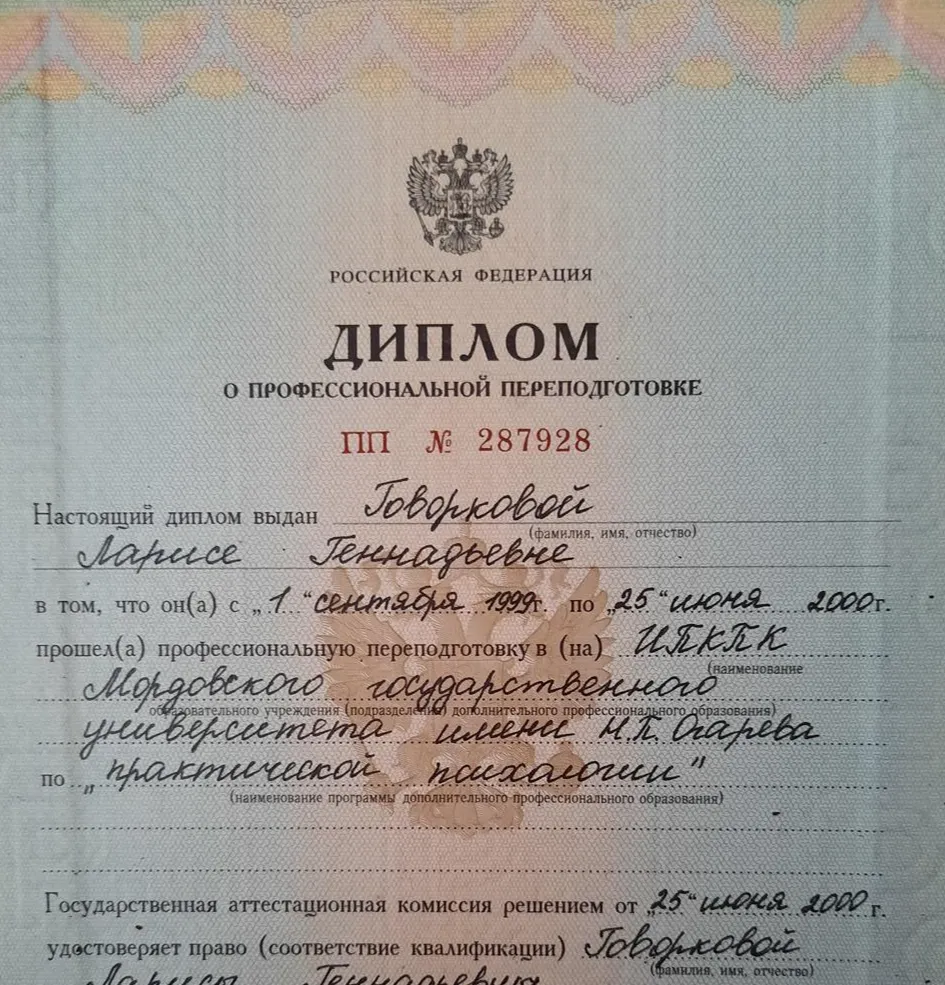 РОССИЙСКАЯ ФЕДЕРАЦИЯ
ДИПЛОМ
О ПРОФЕССИОНАЛЬНОЙ ПЕРЕПОДГОТОВКЕ
ПП № 287928
Настоящий диплом выдан Говорковой
(фамилия, имя, отчество)
Ларисе Геннадьевне
в том, что он(а) с „1“ сентября 1999г. по „25“ июня 2000г.
прошел(а) профессиональную переподготовку в (на) ИПКПК
(наименование
Мордовского государственного
образовательного учреждения (подразделения) дополнительного профессионального образования)
университета имени Н.П. Огарева
по „практической психологии"
(наименование программы дополнительного профессионального образования)
Государственная аттестационная комиссия решением от „25“ июня 2000 г.
удостоверяет право (соответствие квалификации) Говорковой
(фамилия, имя, отчество)
Ларисы Геннадьевны